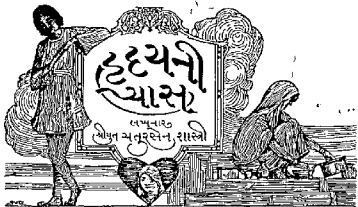 હૃદયની
પ્યાસ
લખનાર:
શ્રીયુત ચતુરસેન શાસ્ત્રી